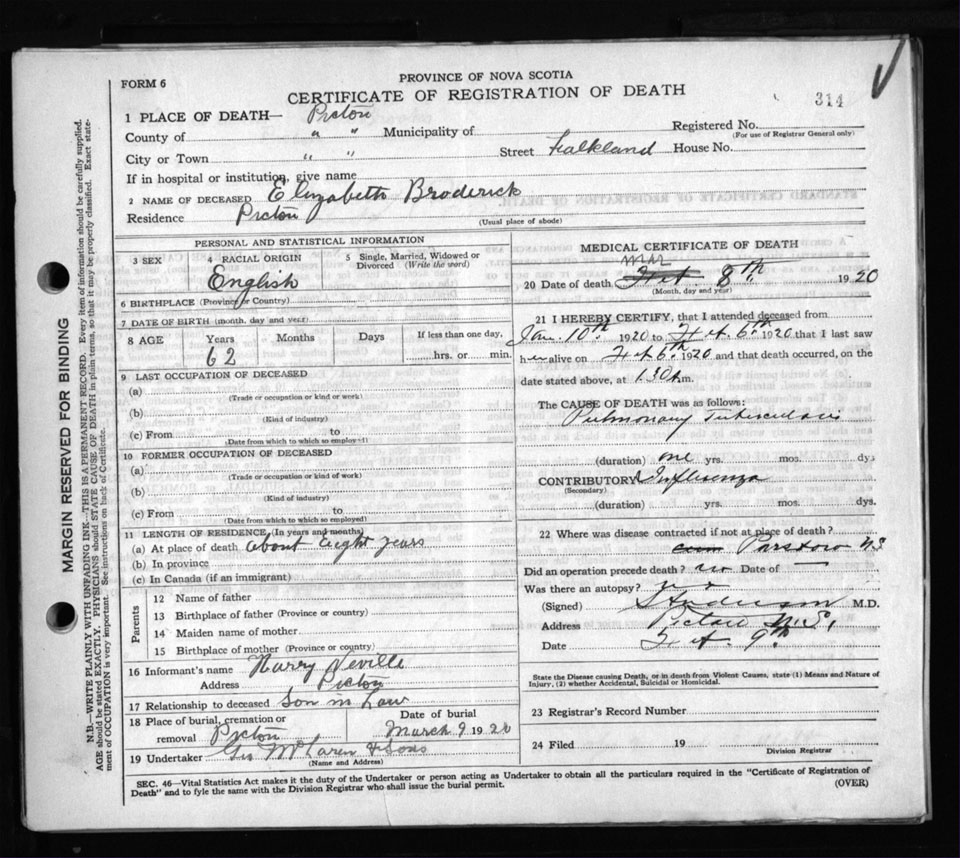 FORM 6
PROVINCE OF NOVA SCOTIA
CERTIFICATE OF REGISTRATION OF DEATH
314
1 PLACE OF DEATH— Picton
County of " " Municipality of
Registered No.
(For use of Registrar General only)
City or Town " " Street Falkland House No.
If in hospital or institution, give name
2 NAME OF DECEASED Elizabeth Broderick
Residence Picton
(Usual place of abode)
PERSONAL AND STATISTICAL INFORMATION
3 SEX 4 RACIAL ORIGIN 5 Single, Married, Widowed or Divorced (Write the word)
English
6 BIRTHPLACE (Province or Country)
7 DATE OF BIRTH (month, day and year)
8 AGE Years Months Days If less than one day,
62 hrs. or min.
9 LAST OCCUPATION OF DECEASED
(a)
(Trade or occupation or kind or work)
(b)
(Kind of industry)
(c) From to
(Date from which to which so employed)
10 FORMER OCCUPATION OF DECEASED
(a)
(Trade or occupation or kind of work)
(b)
(Kind of industry)
(c) From to
(Date from which to which so employed)
11 LENGTH OF RESIDENCE (In years and months)
(a) At place of death about Eight years
(b) In province
(c) In Canada (if an immigrant)
Parents
12 Name of father
13 Birthplace of father (Province or country)
14 Maiden name of mother
15 Birthplace of mother (Province or country)
16 Informant's name Harry Neville
Address Picton
17 Relationship to deceased Son in Law
18 Place of burial, cremation or removal Picton
Date of burial
March 9 1920
19 Undertaker Geo McLaren & Sons
(Name and Address)
MEDICAL CERTIFICATE OF DEATH
Mar
20 Date of death Feb. 8th. 1920
(Month, day and year)
21 I HEREBY CERTIFY, that I attended deceased from
Jan. 10th 1920 to Feb. 6th 1920 that I last saw
her alive on Feb 6th 1920 and that death occurred, on the
date stated above, at 1.30 A m.
The CAUSE OF DEATH was as follows:
Pulmonary Tuberculosis
(duration) one yrs. mos. dys
CONTRIBUTORY Influenza
(Secondary)
(duration) yrs. mos. dys.
22 Where was disease contracted if not at place of death?
N.S
Did an operation precede death? no Date of —
Was there an autopsy? no
(Signed) M.D.
Address Pictou N.S.
Date Feb. 9th.
State the Disease causing Death, or in death from Violent Causes, state (1) Means and Nature of
Injury, (2) whether Accidental, Suicidal or Homicidal.
23 Registrar's Record Number
24 Filed 19
Division Registrar
SEC. 46—Vital Statistics Act makes it the duty of the Undertaker or person acting as Undertaker to obtain all the particulars required in the "Certificate of Registration of
Death" and to fyle the same with the Division Registrar who shall issue the burial permit.
(OVER)
MARGIN RESERVED FOR BINDING
N.B.—WRITE PLAINLY WITH UNFADING INK—THIS IS A PERMANENT RECORD. Every item of information should be carefully supplied.
AGE should be stated EXACTLY. PHYSICIANS should STATE CAUSE OF DEATH in plain terms, so that it may be properly classified. Exact state-
ment of OCCUPATION is very important. See instructions on back of Certificate.